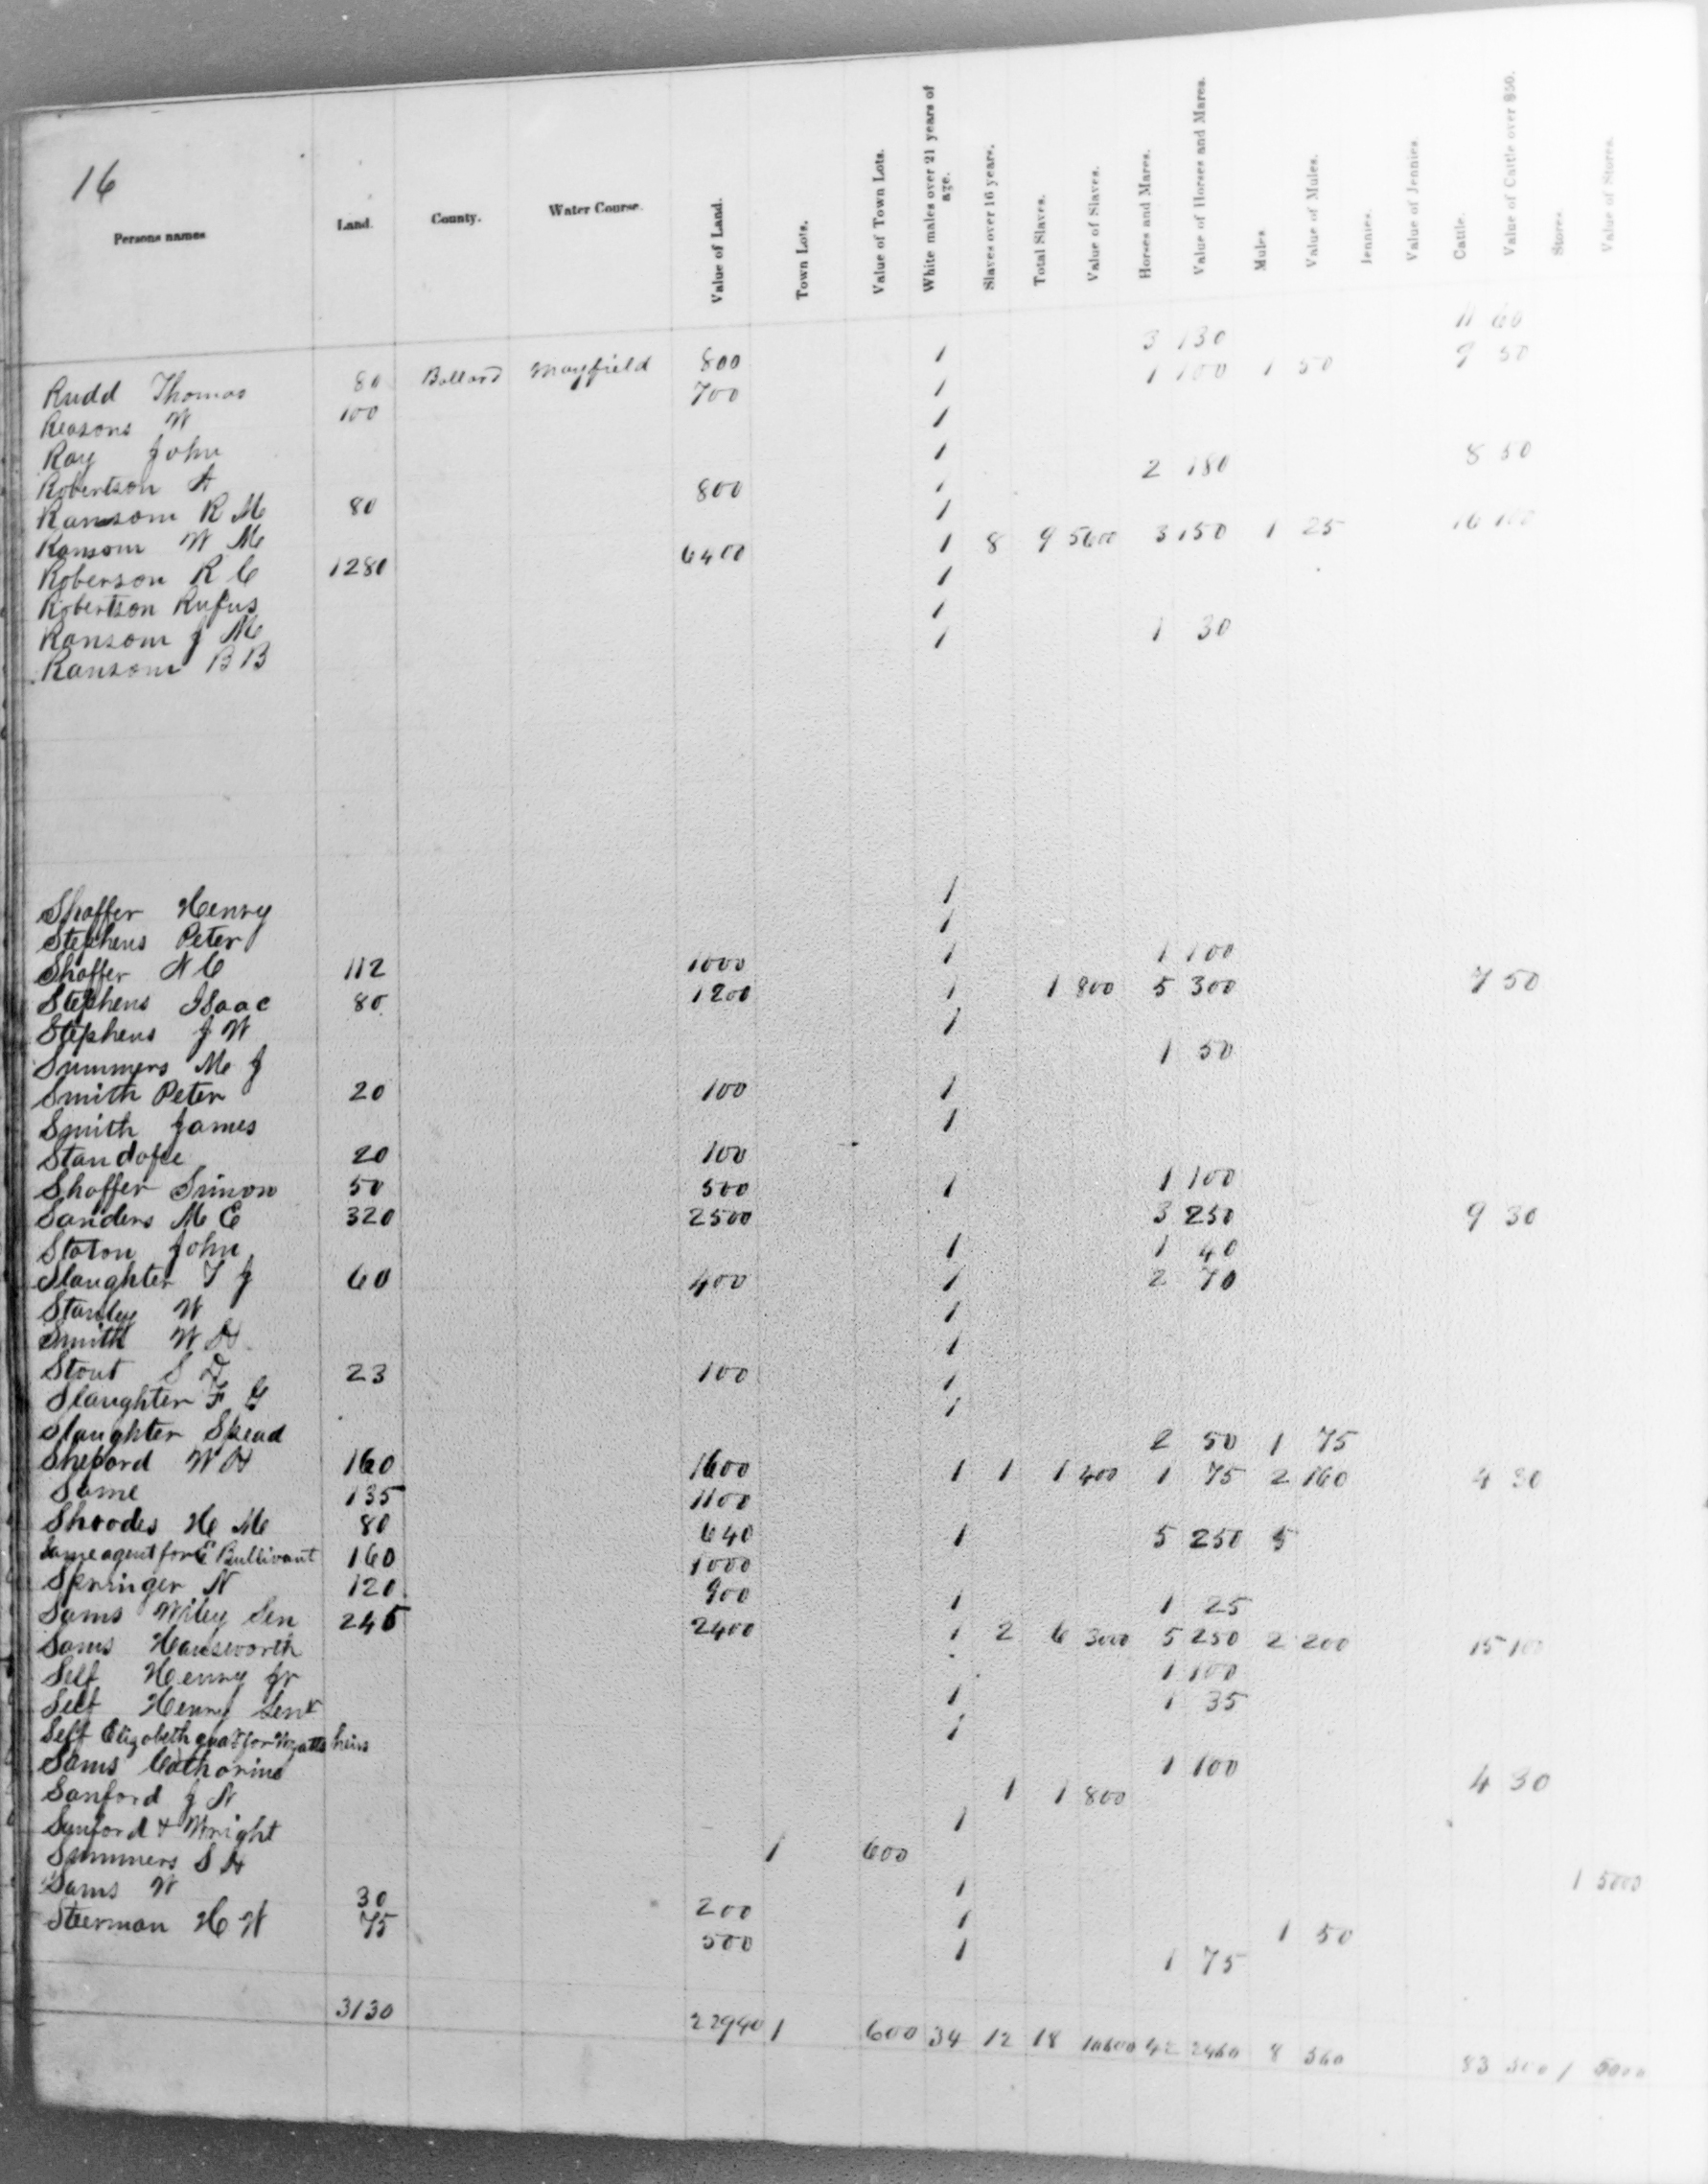 16
Persons names Land. County. Water Course. Value of Land. Town Lots. Value of Town Lots. White males over 21 years of age. Slaves over 16 years. Total Slaves. Value of Slaves. Horses and Mares. Value of Horses and Mares. Mules Value of Mules. Jennies. Value of Jennies. Cattle. Value of Cattle over $50. Stores. Value of Stores.
Rudd Thomas 80 Ballard Mayfield 800 1 3 130 11 60
Reasons W 100 700 1 1 100 1 50 9 50
Ray John 1
Robertson A 1
Ransom R M 80 800 1 2 180 8 50
Ransom W M 1
Roberson R C 1280 6400 1 8 9 5600 3 150 1 25 16 100
Robertson Rufus 1
Ransom J M 1
Ransom B B 1 1 30
Shaffer Henry 1
Stephens Peter 1
Shaffer N C 112 1000 1 1 100
Stephens Isaac 80 1200 1 1 800 5 300 7 50
Stephens J W 1
Summers M J 1 50
Smith Peter 20 100 1
Smith James 1
Standofee 20 100
Shaffer Simon 50 500 1 1 100
Sanders M E 320 2500 3 250 9 30
Staton John 1 1 40
Slaughter T J 60 400 1 2 70
Stanley W 1
Smith W H 1
Stout S D 23 100 1
Slaughter F G 1
Slaughter Spead 2 50 1 75
Shepard W H 160 1600 1 1 1 400 1 75 2 160 4 30
Same 135 1100
Shoodes H M 80 640 1 5 250 5
Same agent for E Bullivant 160 1000
Springer N 120 900 1 1 25
Sams Wiley Sen 245 2400 1 2 6 3000 5 250 2 200 15 100
Sams Hausworth 1 100
Self Henry Jr 1 1 35
Self Henry Senr 1
Self Elizabeth guar for Wyatts heirs 1 100
Sams Catharine 1 1 800 4 30
Sanford J N 1
Sanford & Wright 1 600 1 5000
Summers S H 1
Sams W 30 200 1 1 50
Steerman H W 75 500 1 1 75
3130 22940 1 600 34 12 18 10600 42 2460 8 560 83 500 1 5000